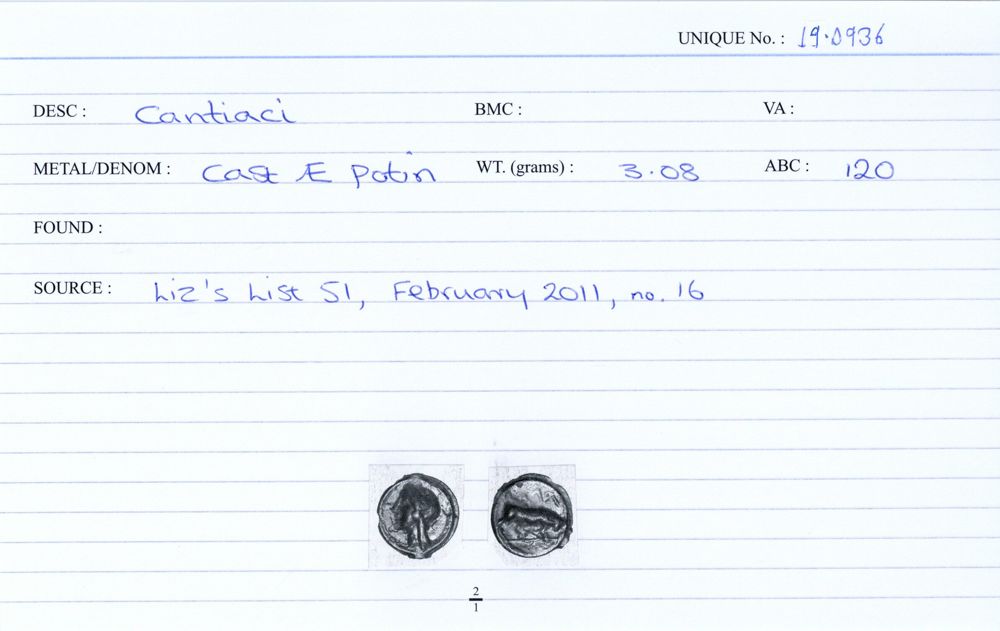 UNIQUE No. : 19.0936
DESC : Cantiaci BMC : VA :
METAL/DENOM : Cast Æ Potin WT. (grams) : 3.08 ABC : 120
FOUND :
SOURCE : Liz's List 51, February 2011, no. 16
2
1